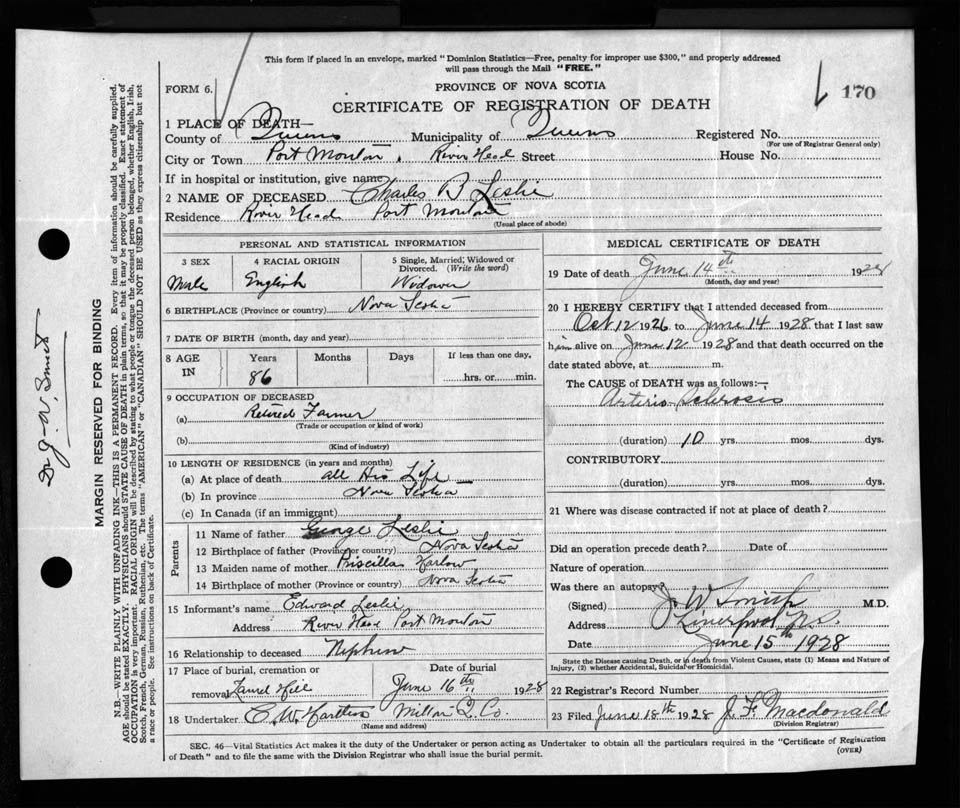 This form if placed in an envelope, marked "Dominion Statistics—Free, penalty for improper use $300," and properly addressed
will pass through the Mail "FREE."
FORM 6.
PROVINCE OF NOVA SCOTIA
170
CERTIFICATE OF REGISTRATION OF DEATH
1 PLACE OF DEATH—
County of Queens Municipality of Queens Registered No.
(For use of Registrar General only)
City or Town Port Mouton, River Head Street House No.
If in hospital or institution, give name
2 NAME OF DECEASED Charles B Leslie
Residence River Head Port Mouton
(Usual place of abode)
PERSONAL AND STATISTICAL INFORMATION
3 SEX
Male
4 RACIAL ORIGIN
English
5 Single, Married, Widowed or
Divorced. (Write the word)
Widower
6 BIRTHPLACE (Province or country) Nova Scotia
7 DATE OF BIRTH (month, day and year)
8 AGE IN
Years Months Days If less than one day,
86 hrs. or min.
9 OCCUPATION OF DECEASED
(a) Retired Farmer
(Trade or occupation or kind of work)
(b)
(Kind of industry)
10 LENGTH OF RESIDENCE (in years and months)
(a) At place of death all His Life
(b) In province Nova Scotia
(c) In Canada (if an immigrant)
Parents
11 Name of father George Leslie
12 Birthplace of father (Province or country) Nova Scotia
13 Maiden name of mother Priscilla Harlow
14 Birthplace of mother (Province or country) Nova Scotia
15 Informant's name Edward Leslie
Address River Head Port Mouton
16 Relationship to deceased Nephew
17 Place of burial, cremation or Date of burial
removal Laurel Hill June 16th 1928
18 Undertaker E. W. Milton Q. Co.
(Name and address)
MEDICAL CERTIFICATE OF DEATH
19 Date of death June 14th 1928
(Month, day and year)
20 I HEREBY CERTIFY that I attended deceased from
Oct 12 1926 to June 14 1928 that I last saw
him alive on June 12 1928 and that death occurred on the
date stated above, at m.
The CAUSE of DEATH was as follows:—
Arterio Sclerosis
(duration) 10 yrs. mos. dys.
CONTRIBUTORY
(duration) yrs. mos. dys.
21 Where was disease contracted if not at place of death?
Did an operation precede death? Date of
Nature of operation
Was there an autopsy?
(Signed) J. W. Smith M.D.
Address Liverpool N.S.
Date June 15th 1928
State the Disease causing Death, or in death from Violent Causes, state (1) Means and Nature of
Injury, (2) whether Accidental, Suicidal or Homicidal.
22 Registrar's Record Number
23 Filed June 18th 1928 J. F. Macdonald
(Division Registrar)
SEC. 46—Vital Statistics Act makes it the duty of the Undertaker or person acting as Undertaker to obtain all the particulars required in the "Certificate of Registration
of Death" and to file the same with the Division Registrar who shall issue the burial permit.
(OVER)
Dr J. W. Smith
MARGIN RESERVED FOR BINDING
N.B.—WRITE PLAINLY WITH UNFADING INK—THIS IS A PERMANENT RECORD. Every item of information should be carefully supplied.
AGE should be stated EXACTLY. PHYSICIANS should STATE CAUSE OF DEATH in plain terms, so that it may be properly classified. Exact statement of
OCCUPATION is very important. RACIAL ORIGIN will be described by stating to what people or tongue the deceased person belonged, whether English, Irish,
Scotch, French, German, Russian, Ruthenian, etc. The terms "AMERICAN" or "CANADIAN" SHOULD NOT BE USED as they express citizenship but not
a race or people. See instructions on back of Certificate.